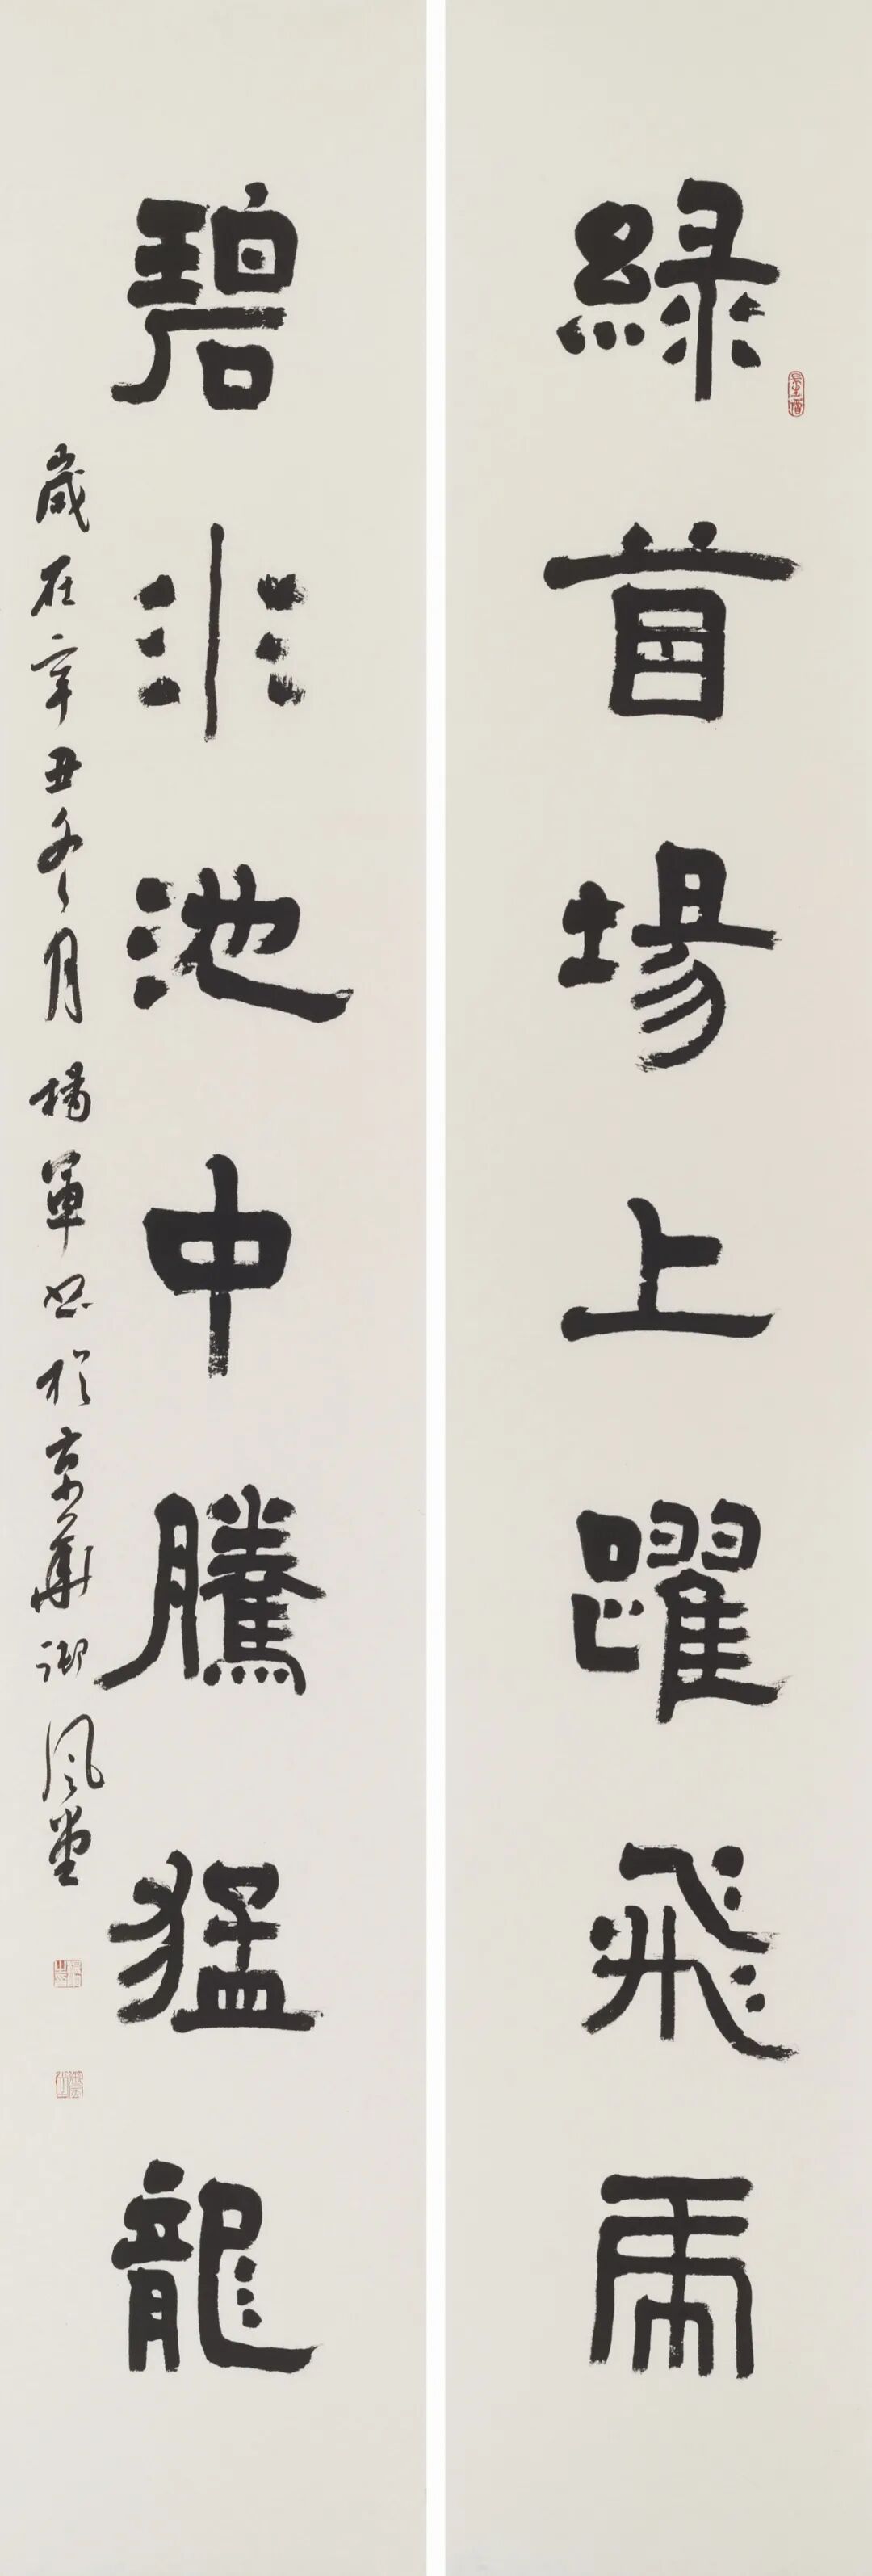 綠茵場上躍飛虎
碧水池中騰猛龍
歲在辛丑冬月楊軍書於京華御風堂